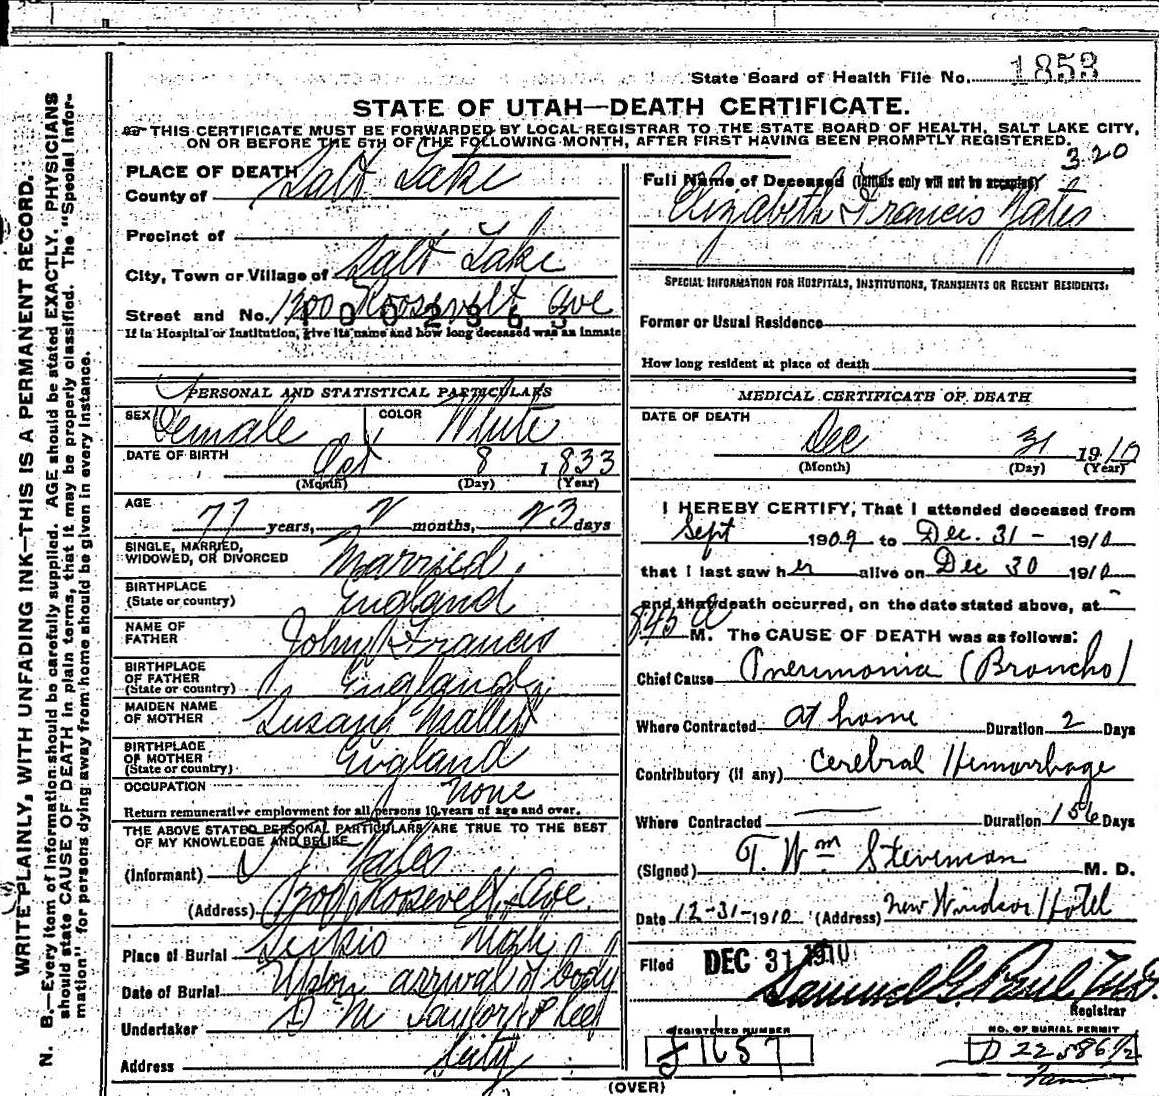 State Board of Health File No. 1853
STATE OF UTAH—DEATH CERTIFICATE.
THIS CERTIFICATE MUST BE FORWARDED BY LOCAL REGISTRAR TO THE STATE BOARD OF HEALTH, SALT LAKE CITY,
ON OR BEFORE THE 5TH OF THE FOLLOWING MONTH, AFTER FIRST HAVING BEEN PROMPTLY REGISTERED.
320
WRITE PLAINLY, WITH UNFADING INK—THIS IS A PERMANENT RECORD.
N. B.—Every item of information should be carefully supplied. AGE should be stated EXACTLY. PHYSICIANS
should state CAUSE OF DEATH in plain terms, that it may be properly classified. The "Special Infor-
mation" for persons dying away from home should be given in every instance.
PLACE OF DEATH
County of Salt Lake
Precinct of
City, Town or Village of Salt Lake
Street and No. 1300 Roosevelt Ave
If in Hospital or Institution, give its name and how long deceased was an inmate
PERSONAL AND STATISTICAL PARTICULARS
SEX Female COLOR White
DATE OF BIRTH Oct 8 1833
(Month) (Day) (Year)
AGE 77 years, 2 months, 23 days
SINGLE, MARRIED,
WIDOWED, OR DIVORCED Married
BIRTHPLACE
(State or country) England
NAME OF
FATHER John Francis
BIRTHPLACE
OF FATHER
(State or country) England
MAIDEN NAME
OF MOTHER Susan
BIRTHPLACE
OF MOTHER
(State or country) England
OCCUPATION None
Return remunerative employment for all persons 10 years of age and over.
THE ABOVE STATED PERSONAL PARTICULARS ARE TRUE TO THE BEST
OF MY KNOWLEDGE AND BELIEF
(Informant) Yates
(Address) 1300 Roosevelt Ave.
Place of Burial
Date of Burial Upon arrival of body
Undertaker S M Taylor
Address City
Full Name of Deceased (Initials only will not be accepted)
Elizabeth Francis Yates
SPECIAL INFORMATION FOR HOSPITALS, INSTITUTIONS, TRANSIENTS OR RECENT RESIDENTS:
Former or Usual Residence
How long resident at place of death
MEDICAL CERTIFICATE OF DEATH
DATE OF DEATH
Dec 31 1910
(Month) (Day) (Year)
I HEREBY CERTIFY, That I attended deceased from
Sept 1909 to Dec. 31 - 1910
that I last saw her alive on Dec 30 1910
and that death occurred, on the date stated above, at
845 a M. The CAUSE OF DEATH was as follows:
Chief Cause Pneumonia (Broncho)
Where Contracted at home Duration 2 Days
Contributory (if any) Cerebral Hemorrhage
Where Contracted Duration 156 Days
(Signed) T. Wm Stevenson M. D.
Date 12-31-1910 (Address) New Windsor Hotel
Filed DEC 31 1910
Samuel G. Paul M.D.
Registrar
REGISTERED NUMBER
J1657
NO. OF BURIAL PERMIT
D 22586 1/2
(OVER)